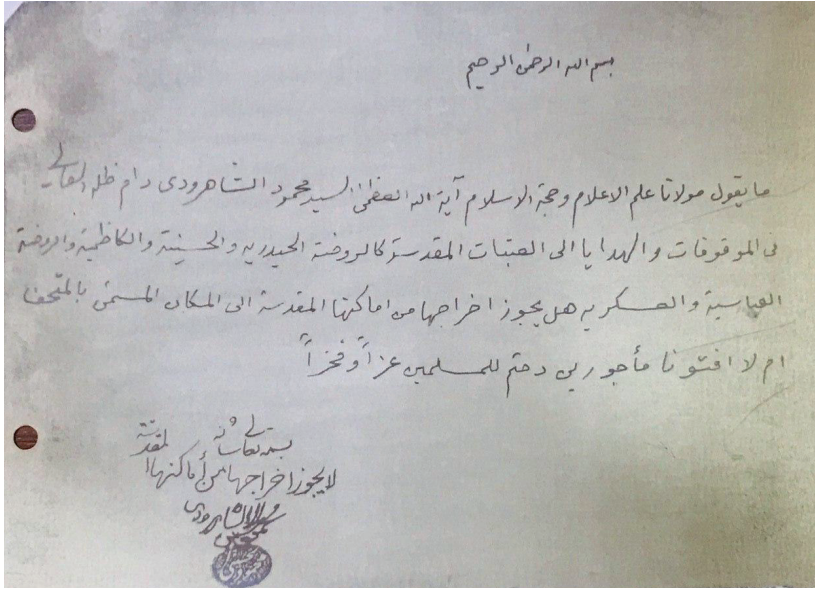 بسم الله الرحمن الرحيم
ما يقول مولانا علم الاعلام وحجة الاسلام آية الله العظمى السيد محمود الشاهرودى دام ظله العالي
فى الموقوفات والهدايا الى العتبات المقدسة كالروضة الحيدريه والحسينية والكاظمية والروضة
العباسية والعسكريه هل يجوز اخراجها من اماكنها المقدسة الى المكان المسمى بالمتحف
ام لا افتونا مأجورين دمتم للمسلمين عزاً وفخراً
بسمه تعالى شأنه
لا يجوز اخراجها من أماكنها المقدسة
الشاهرودى